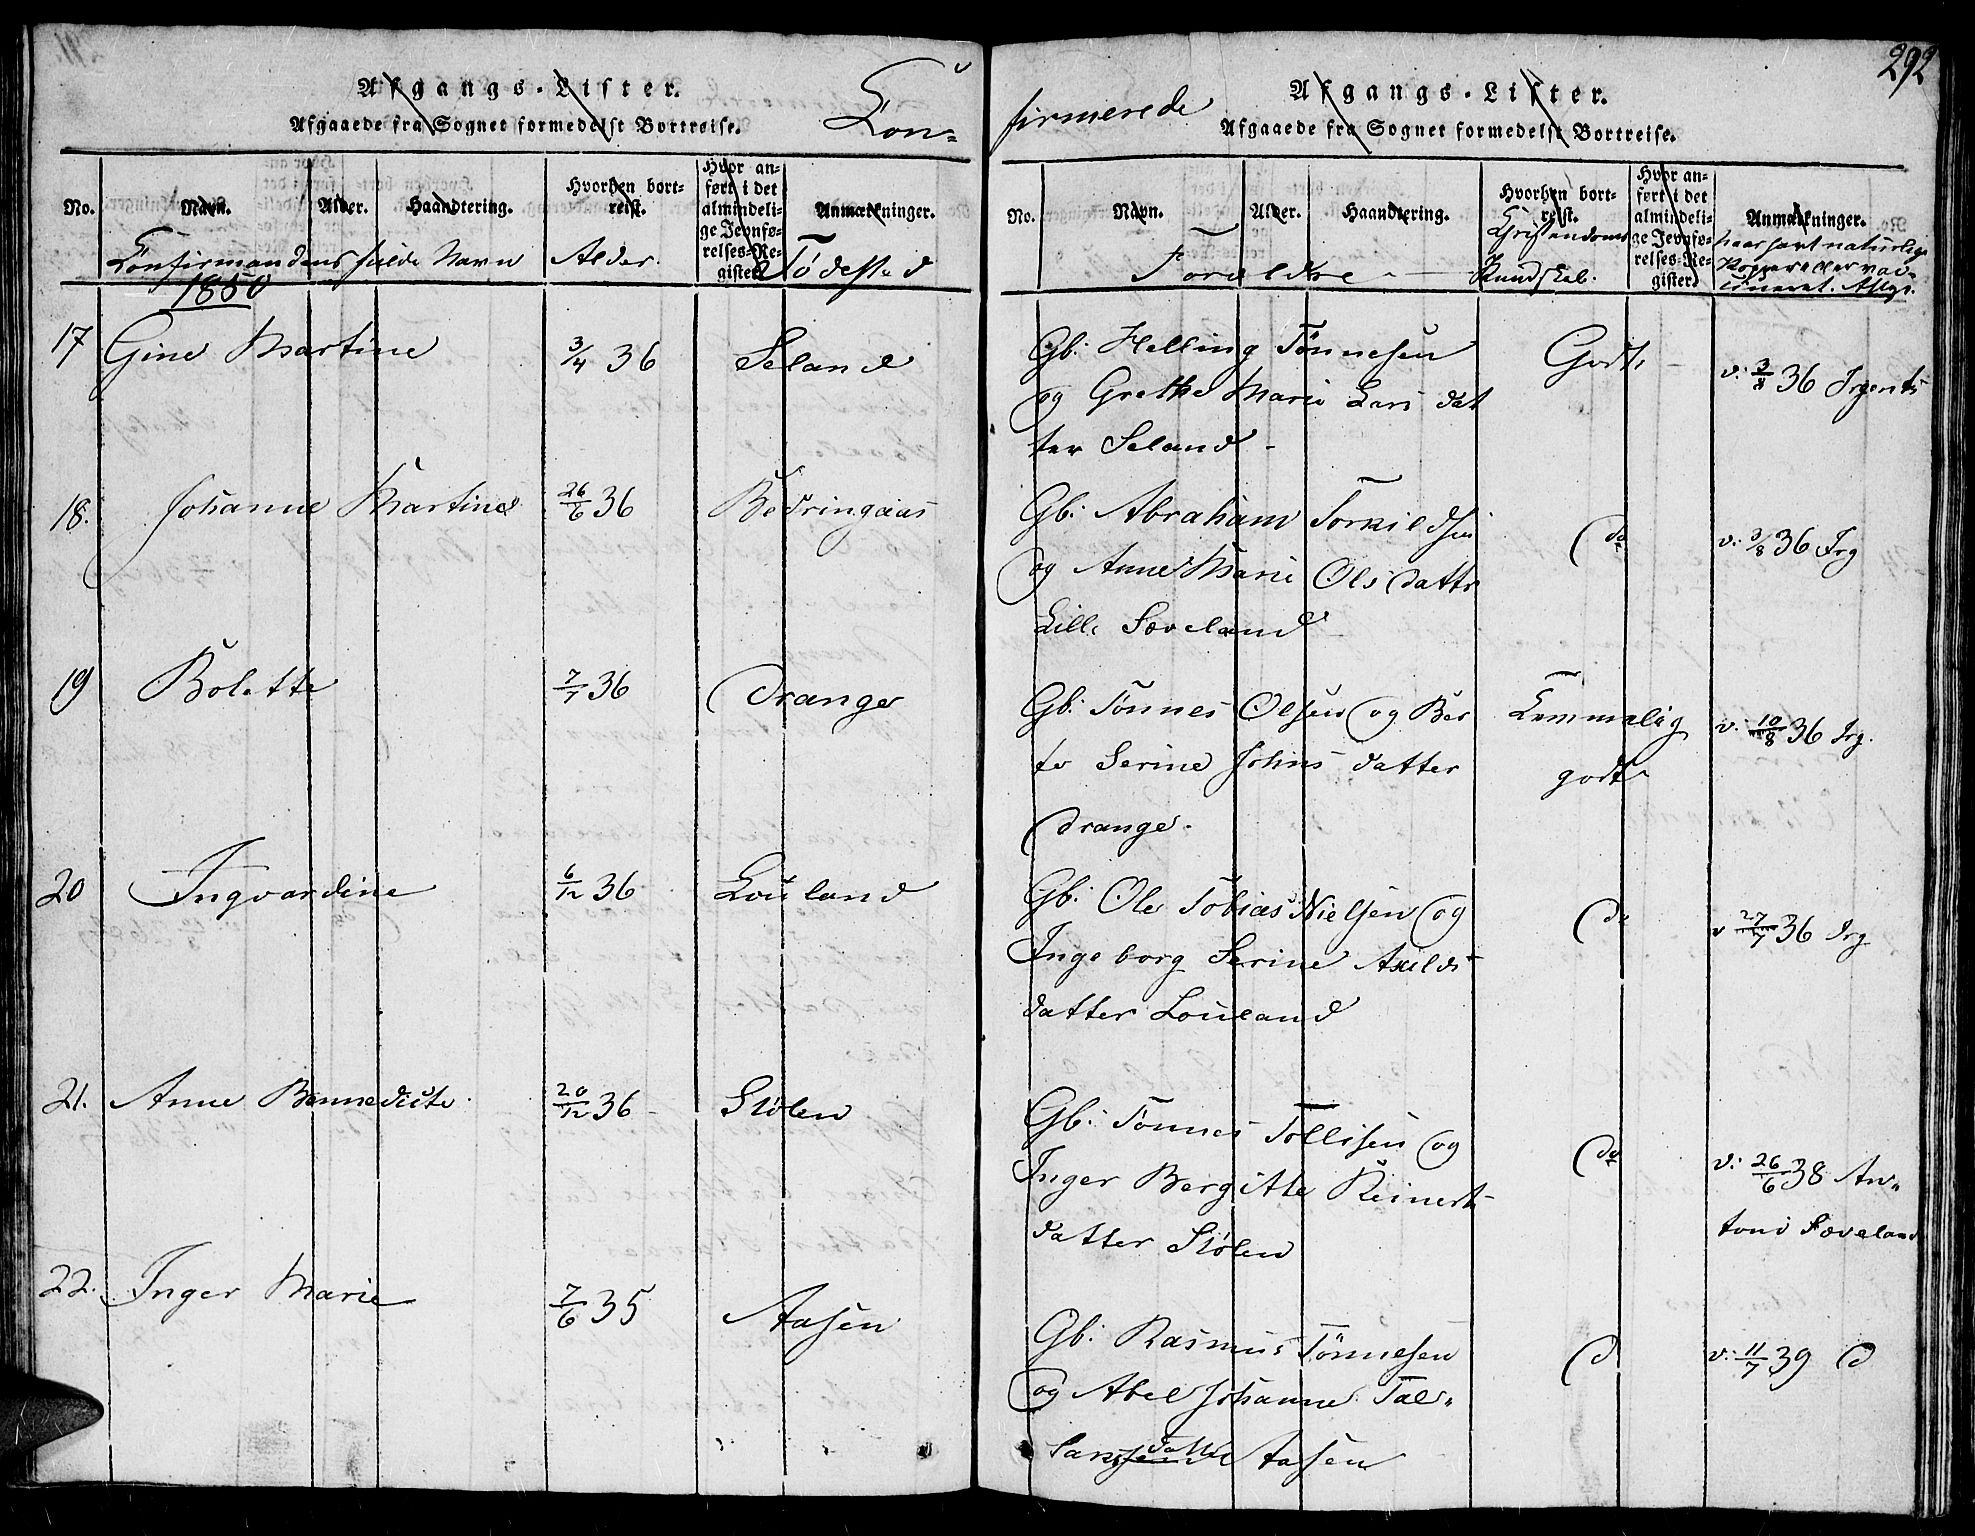 292
Afgangs-Lister.
Afgaaede fra Sognet formedelst Bortreise.
Con-
firmerede
Afgangs-Lister.
Afgaaede fra Sognet formedelst Bortreise.
No. Navn. Alder. Haandtering. Hvorhen bortreist. Hvor anført i det almindelige Jevnførelses-Register. Anmærkninger.
Confirmandens fulde Navn Alder. Fødested
1850
No. Navn. Alder. Haandtering. Hvorhen bortreist. Hvor anført i det almindelige Jevnførelses-Register. Anmærkninger.
Forældre Christendoms Kundskab. haar havt naturlige
Kopper eller vac-
cineret. Attest.
17 Gine Martine 3/4 36 Seland
Gb: Helling Tönnesen Godt v: 3/8 36 Irgents
og Grethe Marie Lars dat
ter Seland
18. Johanne Martine 26/6 36 Bedringaas
Gb: Abraham Torkildsen do v: 3/8 36 Irg
og Anne Marie Ols datter
Lille Sæveland
19 Bolette 7/7 36 Drange
Gb: Tönnes Olsen og Ber Temmelig v: 10/8 36 Irg.
te Serine Johns datter godt
Drange.
20 Ingvardine 6/12 36 Louland
Gb: Ole Tobias Nielsen og do v 27/7 36 Irg
Ingeborg Serine Axelds
datter Louland
21. Anne Bennedicte. 20/12 36 Stölen
Gb: Tönnes Tollisen og do v: 26/6 38 An-
Inger Bergitte Reinert toni Sæveland
datter Stölen
22. Inger Marie 7/6 35 Aasen
Gb: Rasmus Tönnesen d v: 11/7 39 d
og Abel Johanne Tal-
datter Aasen